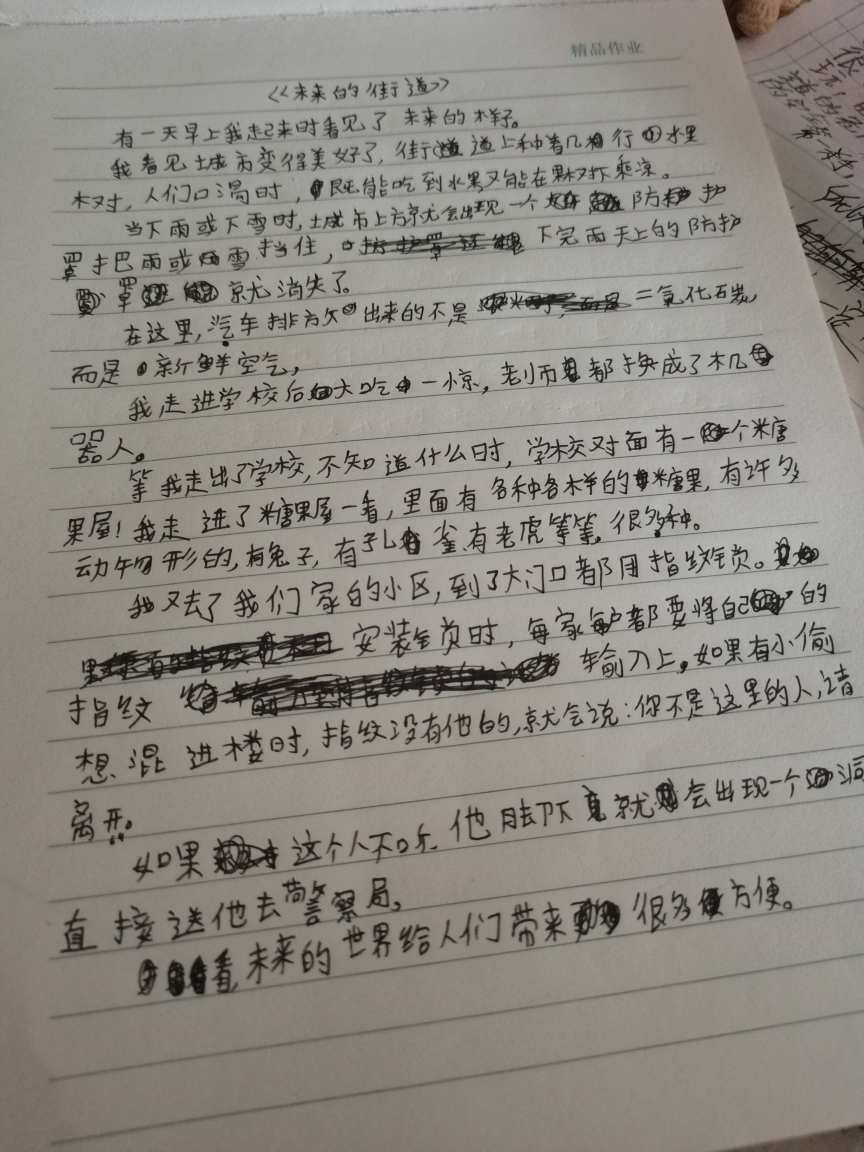 精品作业
《未来的街道》
有一天早上我起来时看见了未来的样子。
我看见城市变得美好了,街道道上种着几行水果
树,人们口渴时,既能吃到水果又能在果树下乘凉。
当下雨或下雪时,城市上方就会出现一个防护
罩把雨或雪挡住,下完雨天上的防护
罩就消失了。
在这里,汽车排放出来的不是二氧化碳,
而是新鲜空气,
我走进学校后大吃一惊,老师都换成了机
器人。
等我走出了学校,不知道什么时,学校对面有一个糖
果屋!我走进了糖果屋一看,里面有各种各样的糖果,有许多
动物形的,有兔子,有孔雀有老虎等等,很多种。
我又去了我们家的小区,到了大门口都用指纹锁。
安装锁时,每家每户都要将自己的
指纹输入上。如果有小偷
想混进楼时,指纹没有他的,就会说:你不是这里的人,请
离开。
如果这个人不听他脚下就会出现一个洞
直接送他去警察局。
看,未来的世界给人们带来很多方便。